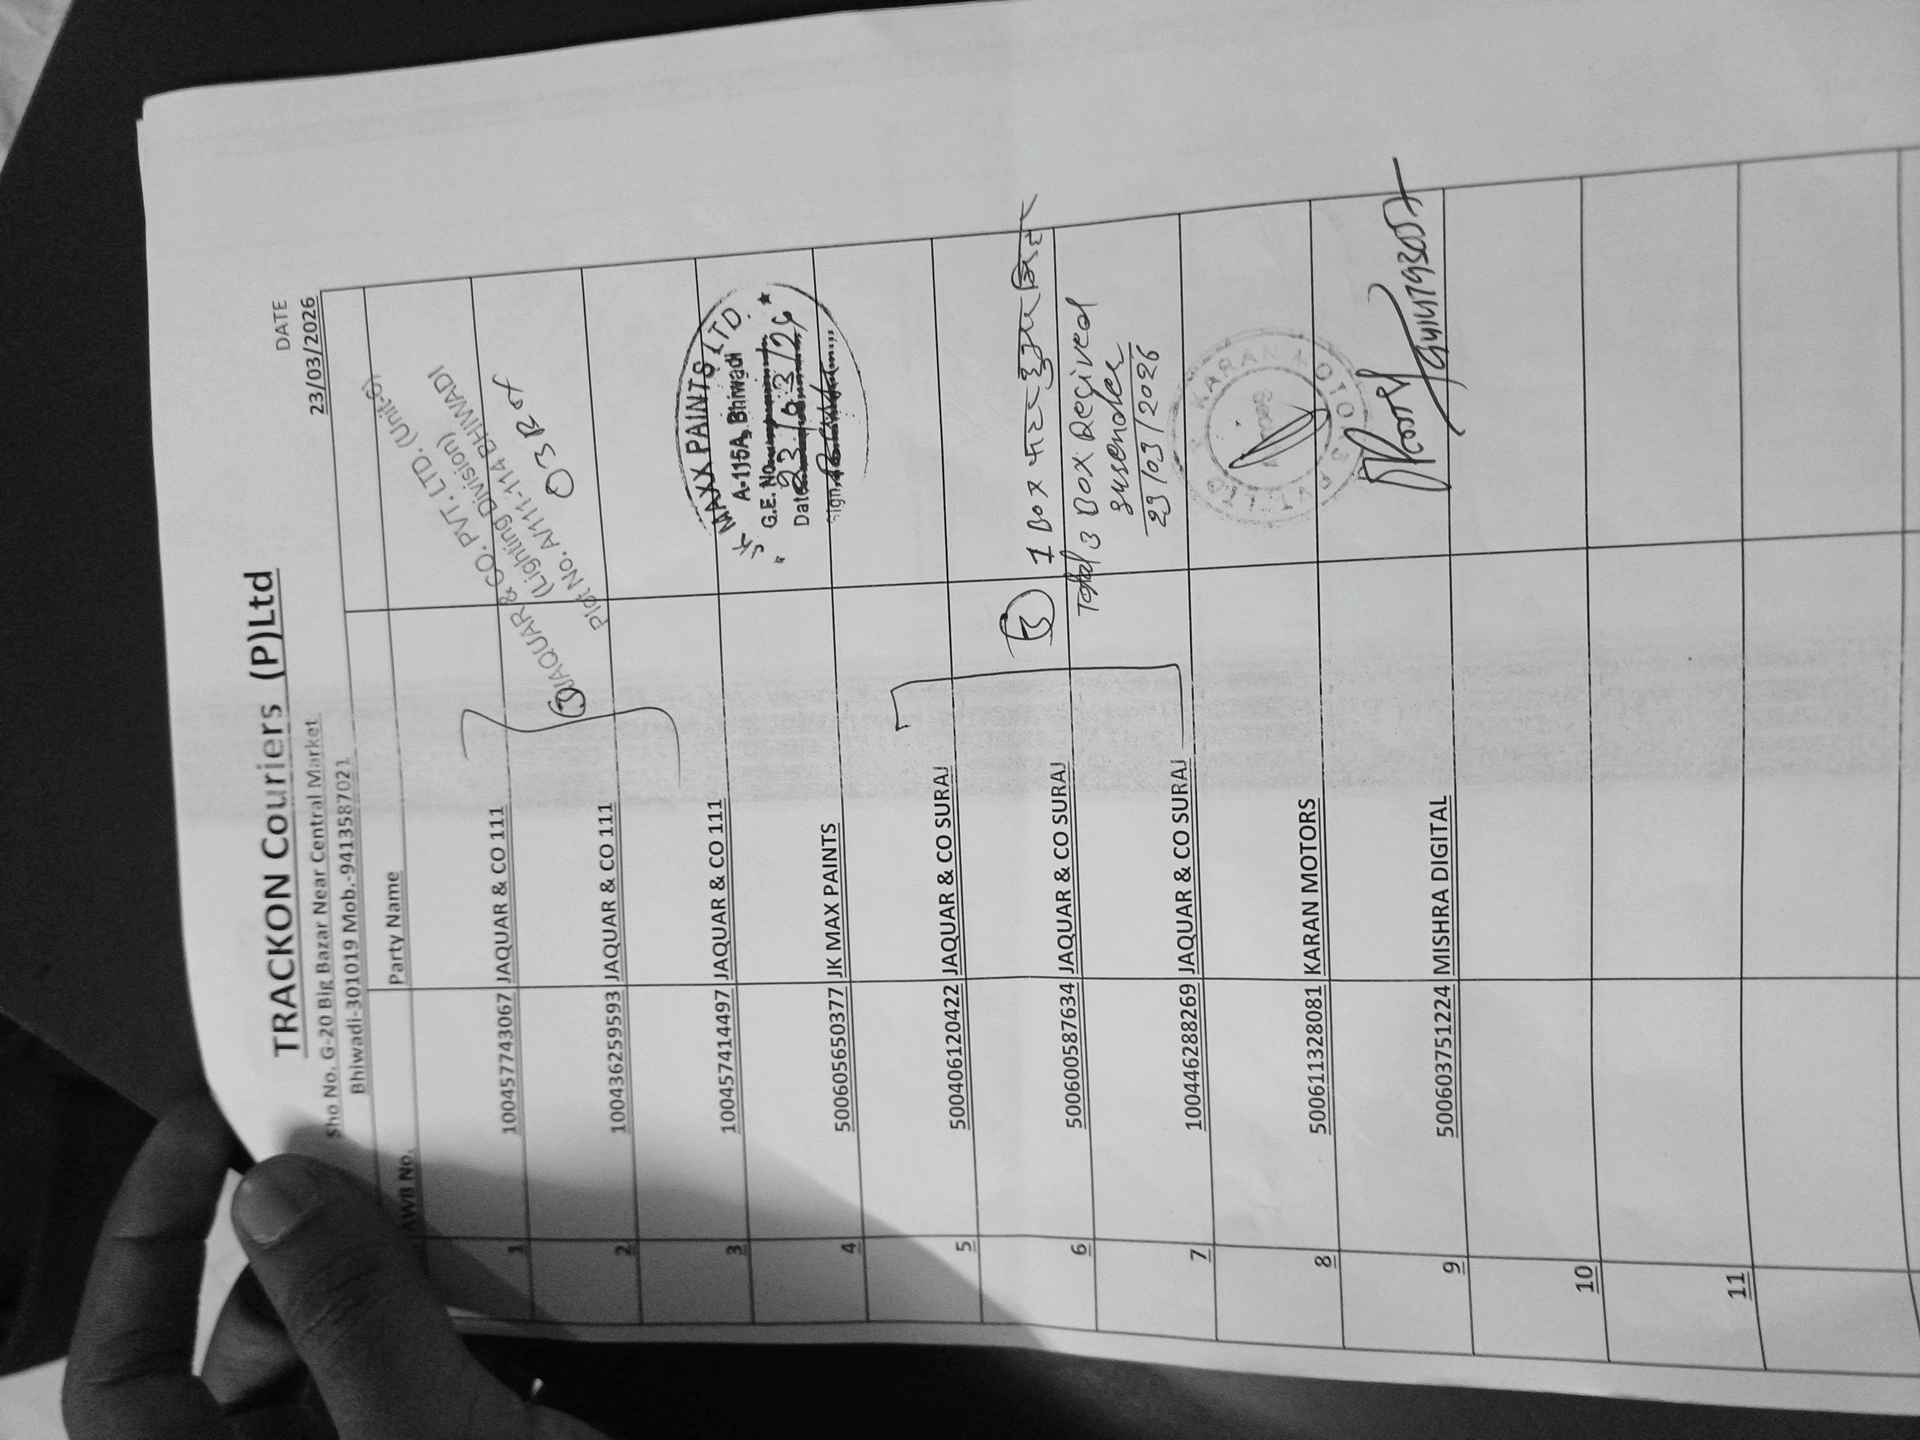 TRACKON Couriers (P)Ltd
DATE
Sho No. G-20 Big Bazar Near Central Market
23/03/2026
Bhiwadi-301019 Mob.-9413587021
AWB No. Party Name
1 100457743067 JAQUAR & CO 111
2 100436259593 JAQUAR & CO 111
3 100457414497 JAQUAR & CO 111
3
JAQUAR & CO. PVT. LTD. (Unit-6)
(Lighting Division)
Plot No. A/111-114 BHIWADI
03 Box
4 500605650377 JK MAX PAINTS
JK MAXX PAINTS LTD.
A-115A, Bhiwadi
G.E. No
Date 23/03/26
Sign
5 500406120422 JAQUAR & CO SURAJ
6 500600587634 JAQUAR & CO SURAJ
7 100446288269 JAQUAR & CO SURAJ
3
1 Box
Total 3 Box Recived
23/03/2026
8 500611328081 KARAN MOTORS
KARAN MOTORS PVT. LTD.
9 500603751224 MISHRA DIGITAL
10
11